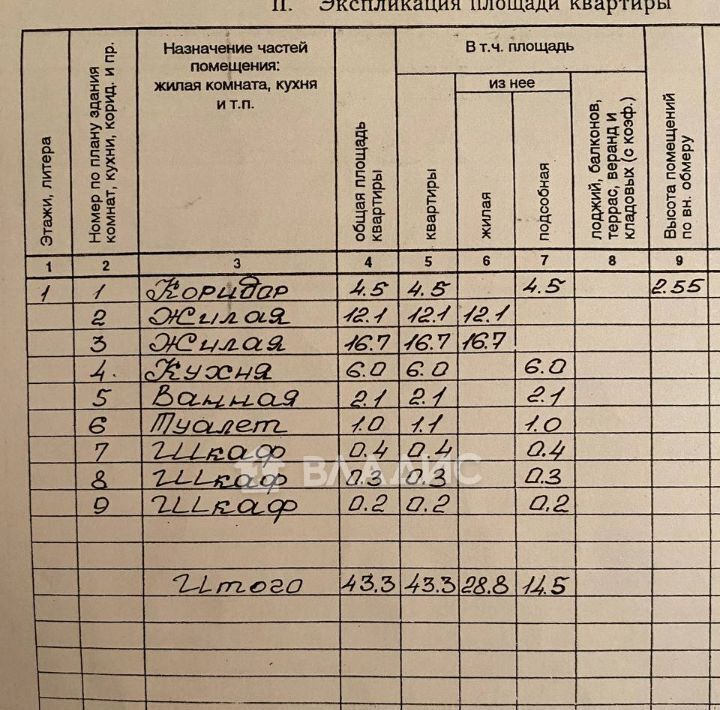 II. Экспликация площади квартиры
Этажи, литера
Номер по плану здания комнат, кухни, корид. и пр.
Назначение частей помещения: жилая комната, кухня и т.п.
общая площадь квартиры
В т.ч. площадь
квартиры
из нее
жилая
подсобная
лоджий, балконов, террас, веранд и кладовых (с коэф.)
Высота помещений по вн. обмеру
1 2 3 4 5 6 7 8 9
1 1 Коридор 4.5 4.5 4.5 2.55
2 Жилая 12.1 12.1 12.1
3 Жилая 16.7 16.7 16.7
4. Кухня 6.0 6.0 6.0
5 Ванная 2.1 2.1 2.1
6 Туалет 1.0 1.1 1.0
7 Шкаф 0.4 0.4 0.4
8 Шкаф 0.3 0.3 0.3
ВЛАДИС
9 Шкаф 0.2 0.2 0.2
Итого 43.3 43.3 28.8 14.5